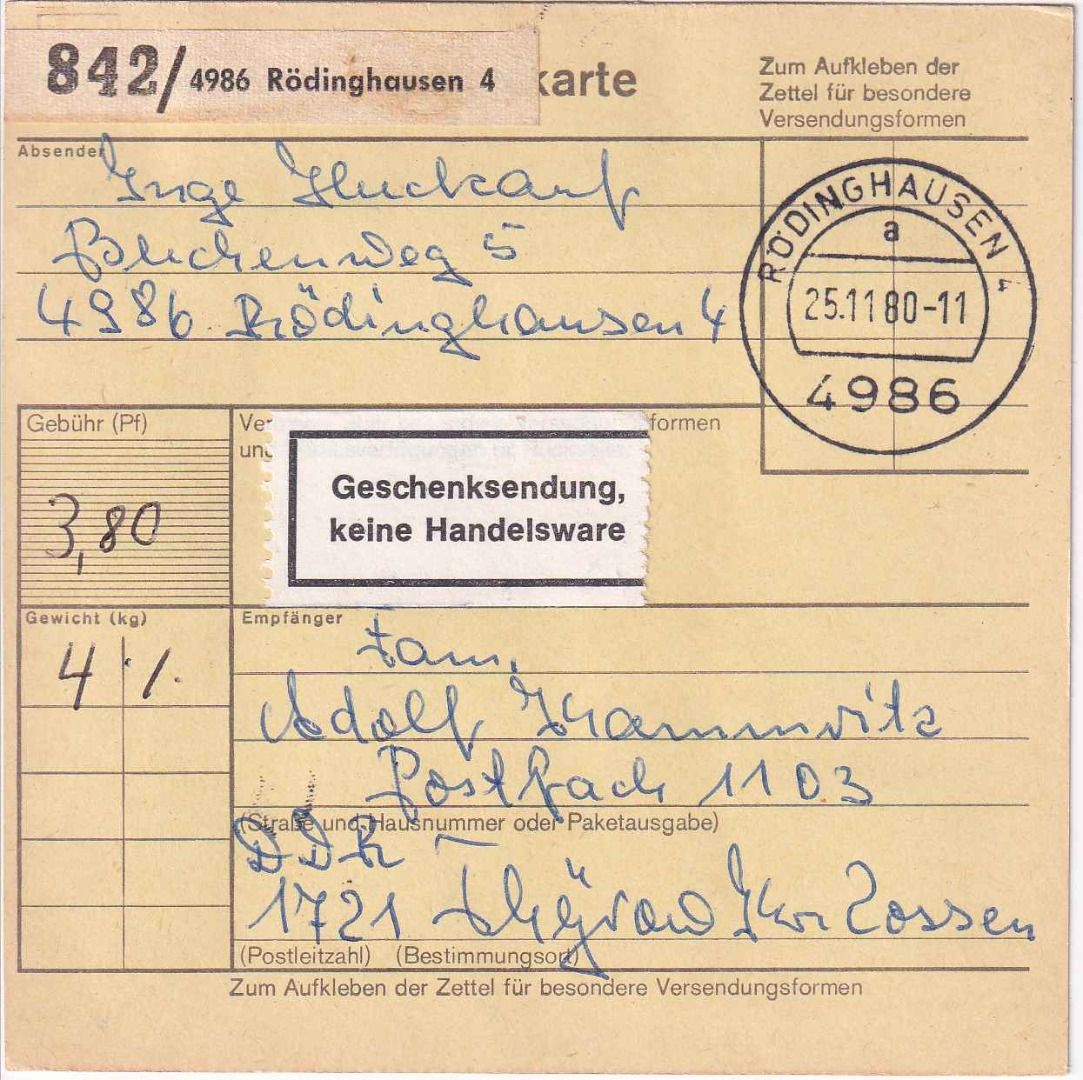 842/ 4986 Rödinghausen 4
karte
Zum Aufkleben der
Zettel für besondere
Versendungsformen
Absender
Inge Gluckauf
Buchenweg 5
4986 Rödinghausen 4
RÖDINGHAUSEN 4
a
25.11 80-11
4986
Gebühr (Pf)
3,80
Ve formen
und
Geschenksendung,
keine Handelsware
Gewicht (kg)
4 /.
Empfänger
Fam.
Adolf
Postfach 1103
(Straße und Hausnummer oder Paketausgabe)
DDR –
1721 Kr. Zossen
(Postleitzahl) (Bestimmungsort)
Zum Aufkleben der Zettel für besondere Versendungsformen